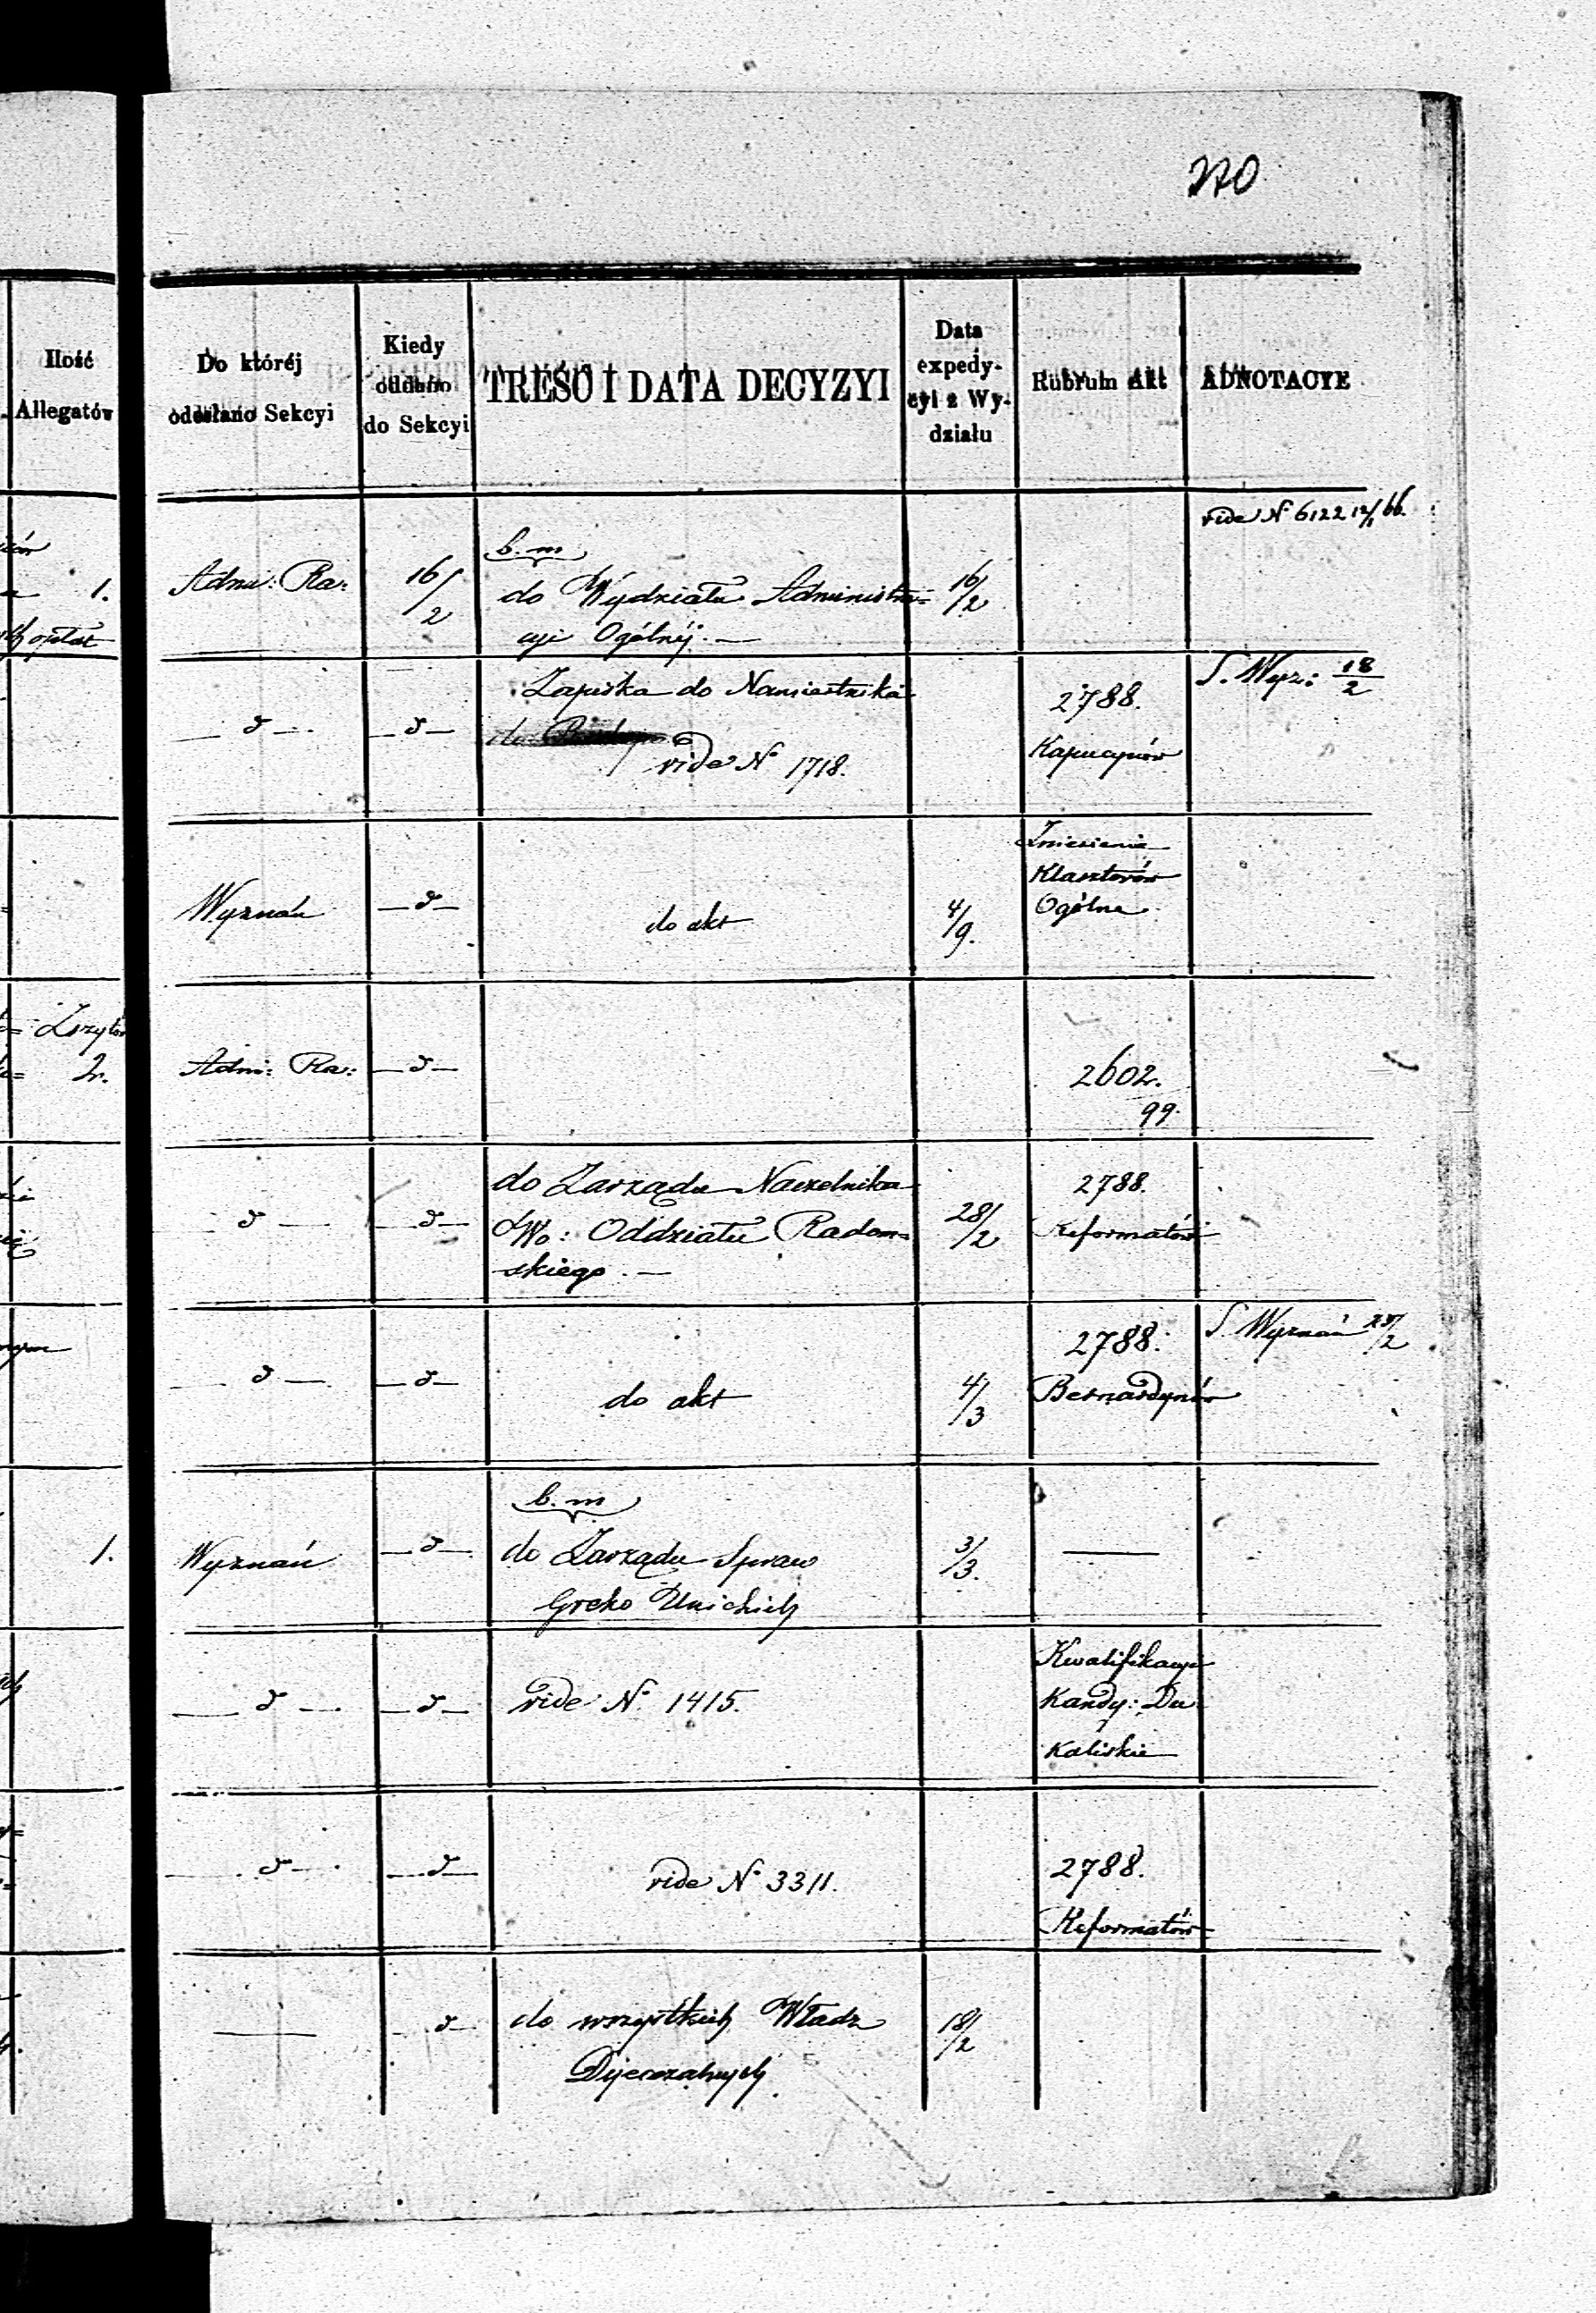 270
Ilość
Allegatów
Do któréj
odesłano Sekcyi
Kiedy
oddano
do Sekcyi
TREŚĆ I DATA DECYZYI
Data
expedy-
cyi z Wy-
działu
Rubrum Akt
ADNOTACYE
vide N 6122 12/1 66.
1.
opłat
Adm: Ra:
16/2
b. m
do Wydziału Administra=
cyi Ogólnéj. —
16/2
— d —
— d —
Zapiska do Namiestnika
do
vide N° 1718.
2788.
Kapucynów
S. Wyz: 18/2
Wyznań
— d —
do akt
4/9.
Zniesienie
Klasztorów
Ogólne
2.
Adm: Ra:
— d —
2602.
99.
— d —
— d —
do Zarządu Naczelnika
Wo: Oddziału Radom=
skiego. —
28/2
2788.
Reformatów
— d —
— d —
do akt
4/3
2788.
Bernardynów
S. Wyznań 27/2
1.
Wyznań
— d —
b. m
do Zarządu Spraw
Greko Unickich
3/3.
—
— d —
— d —
vide N° 1415.
Kwalifikacye
Kandy: Du
Kaliskie
— d —
— d —
vide N° 3311.
2788.
Reformatów
—
— d —
do wszystkich Władz
Dyecezalnych
18/2